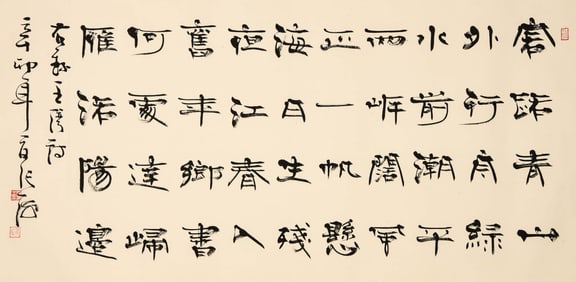 客路青山
外行舟緑
水前潮平
兩岸闊風
正一帆懸
海日生殘
夜江春入
舊年鄉書
何處達歸
雁洛陽邊
右錄王灣詩
辛卯年張海